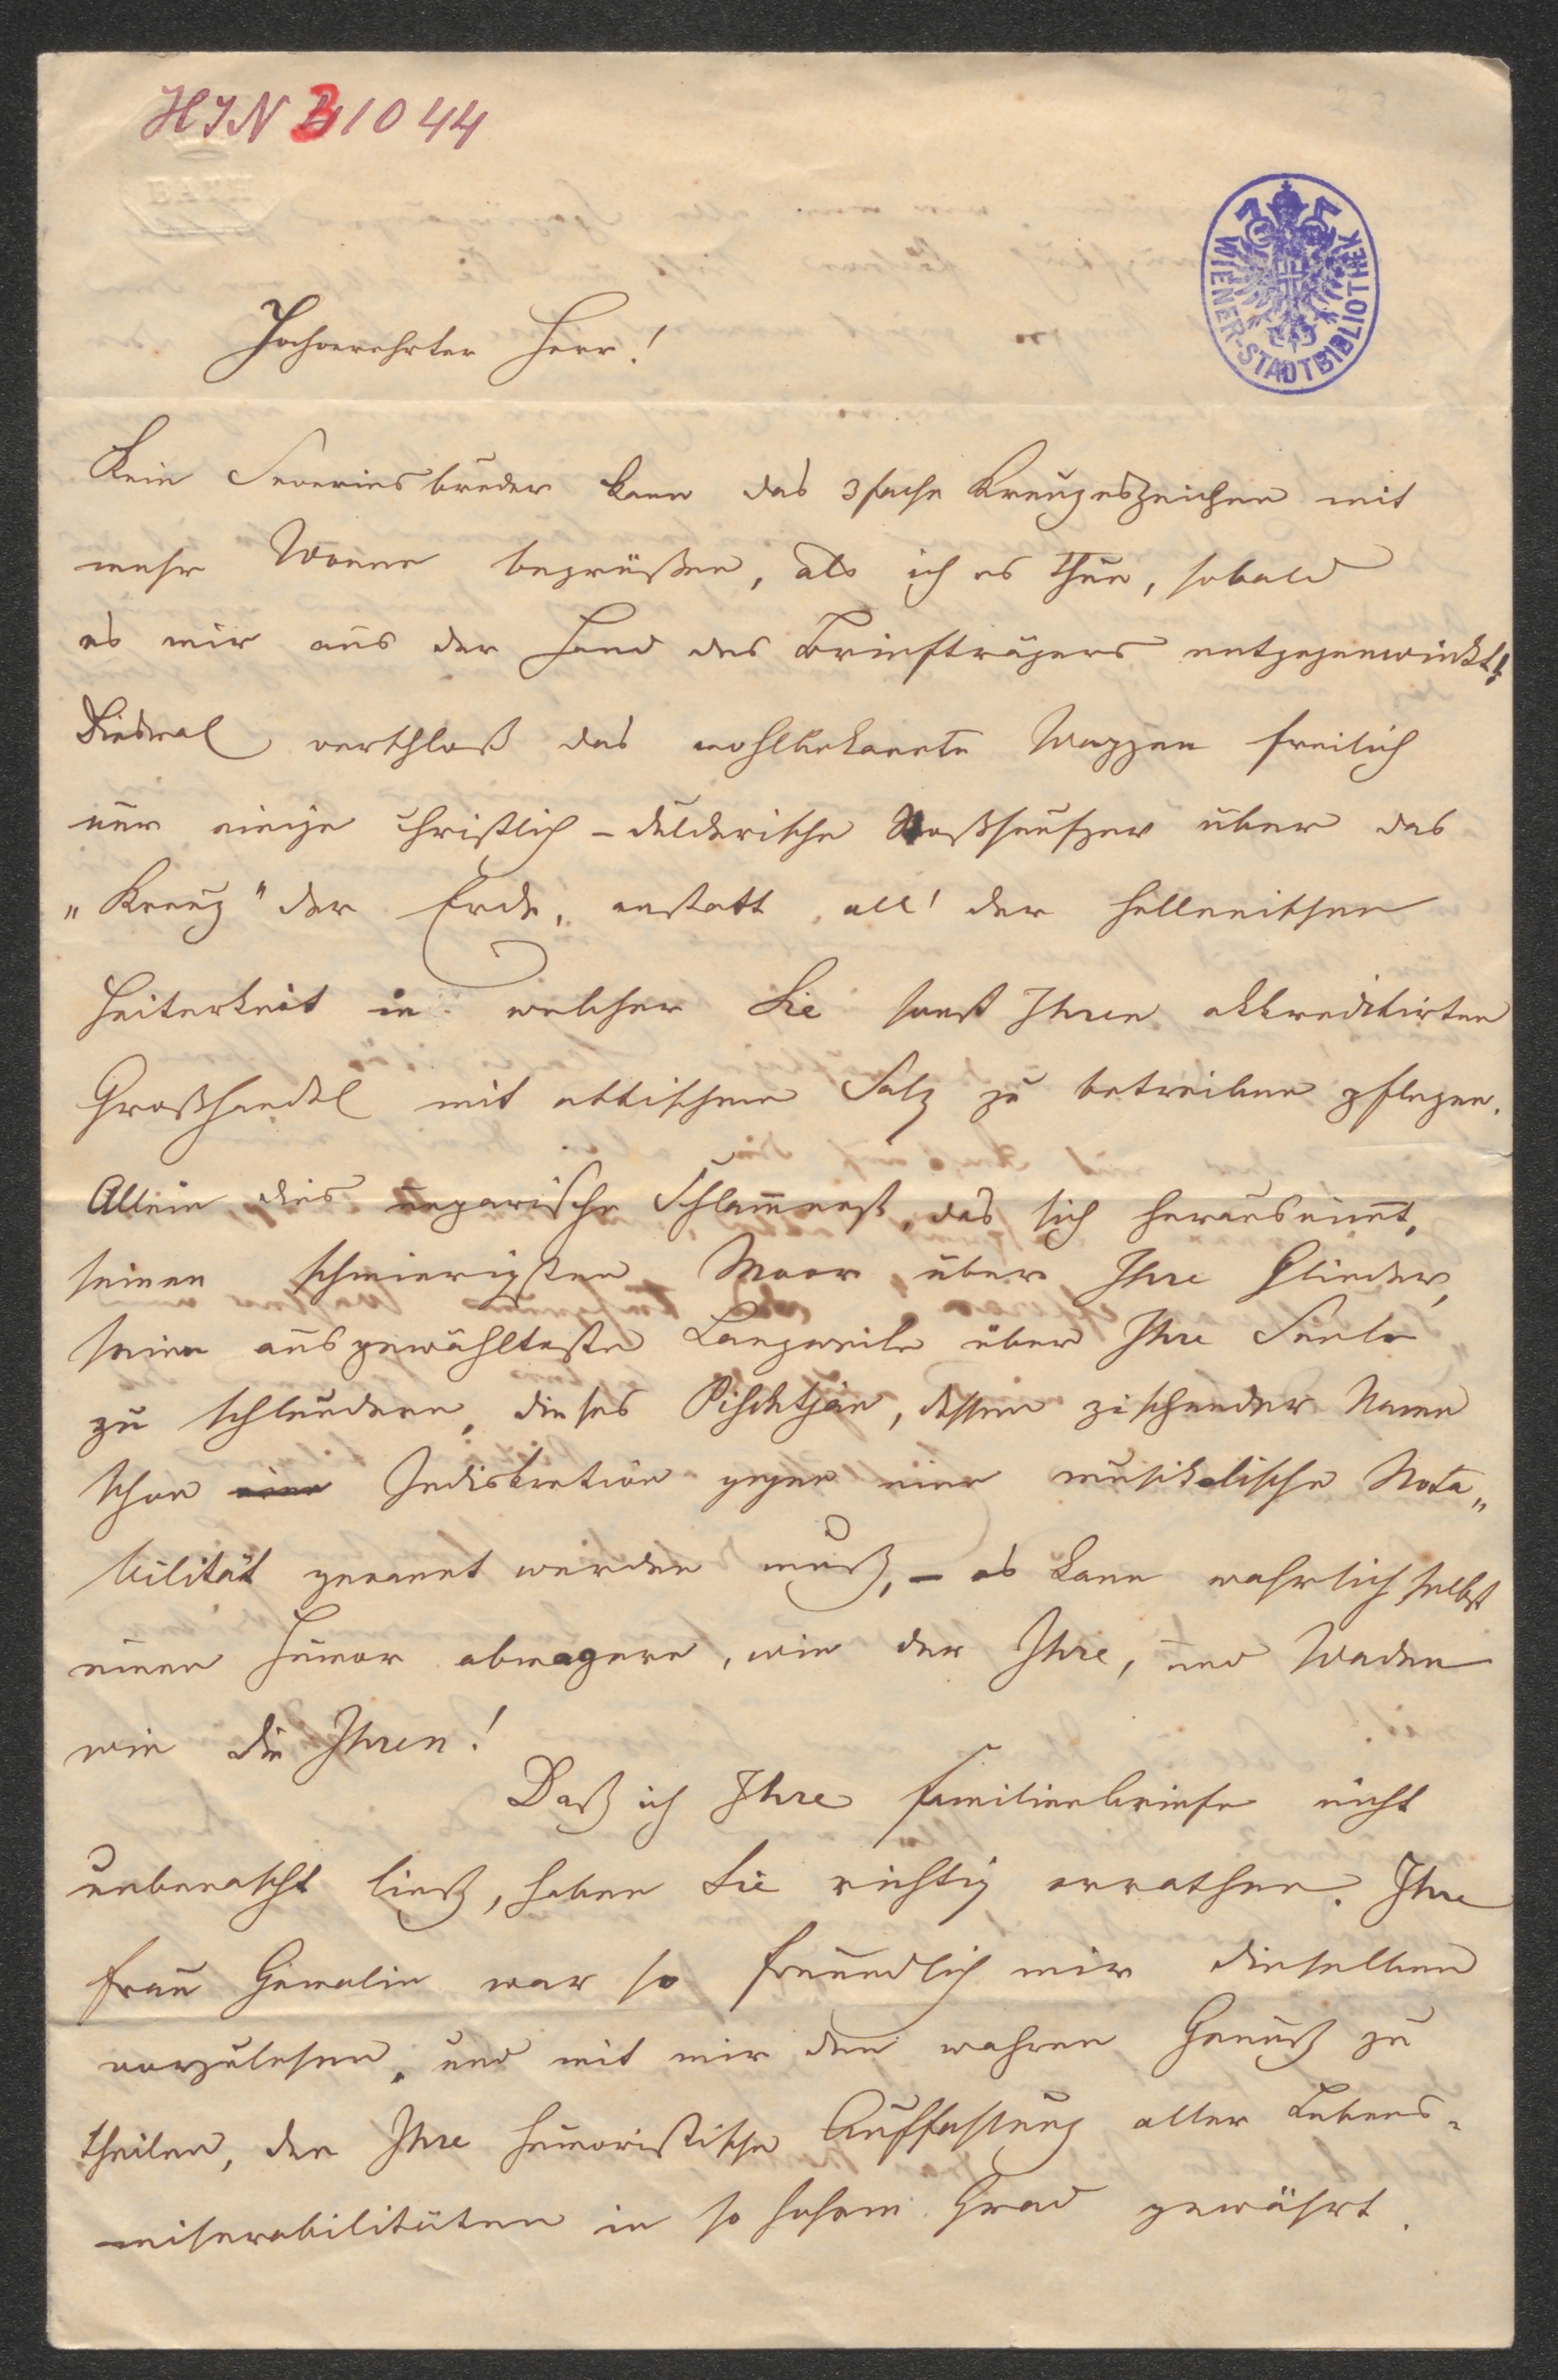 HIN 31044
WIENER-STADTBIBLIOTHEK
Hochverehrter Herr!
Kein Severinsbruder kann das 3fache Kreuzeszeichen mit
mehr Wonne begrüßen, als ich es thue, sobald
es mir aus der Hand des Briefträgers entgegenwinkt!
Diesmal verschloß das wohlbekannte Wappen freilich
nur einige christlich-dulderische Stoßseufzer über das
„Kreuz" der Erde, anstatt all' der hellenischen
Heiterkeit in welcher Sie sonst Ihren akkreditirten
Großhandel mit attischem Salz zu betreiben pflegen.
Allein dies ungarische Schlammnest, das sich herausnimt,
seinen schmierigsten Moor über Ihre Glieder,
seine ausgewählteste Langweile über Ihre Seele
zu schleudern, dieses Pischtjan, dessen zischender Name
schon eine Indiskretion gegen eine musikalische Nota„
bilität genannt werden muß, – es kann wahrlich selbst
einen Humor abmagern, wie der Ihre, und Waden
wie die Ihren!
Daß ich Ihre Familienbriefe nicht
unbenascht ließ, haben Sie richtig errathen. Ihre
Frau Gemalin war so freundlich mir dieselben
vorzulesen, und mit mir den wahren Genuß zu
theilen, den Ihre humoristische Auffassung aller Lebens-
miserabilitäten in so hohem Grad gewährt.